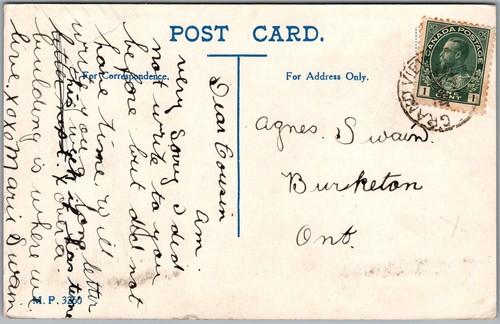 POST CARD.
For Correspondence.
For Address Only.
CANADA POSTAGE
1 CENT 1
GRAND
Agnes. Swain.
Burketon
Ont.
Dear Cousin
Am.
very sorry I did
not write to you
before but did not
have time. will
write you a long letter
building is where we
live. xoxo Marie Swain
M. P. 3260